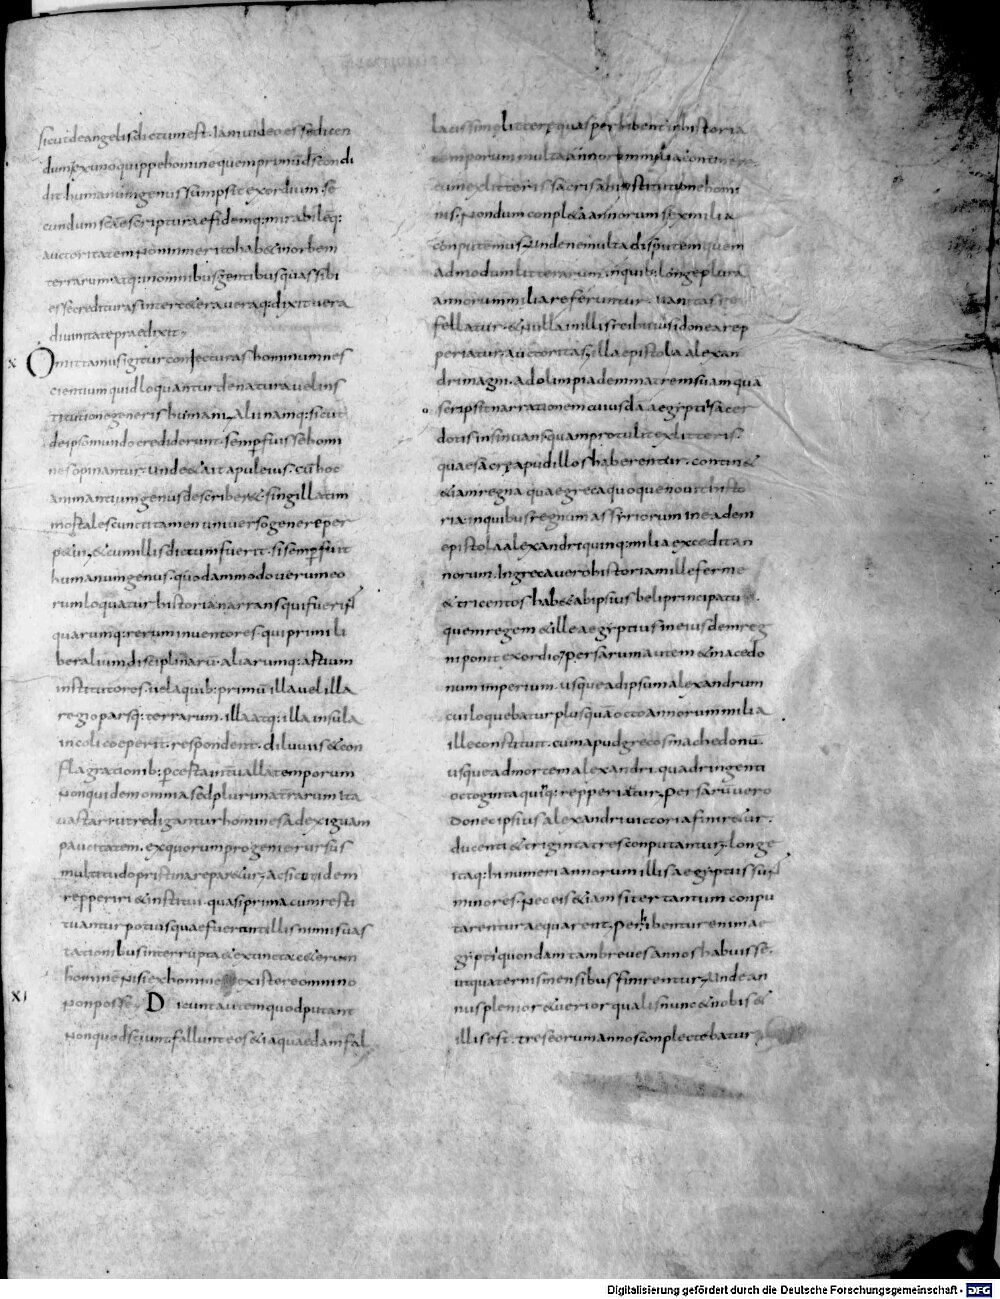 sicut de angelis dictum est. Iam video esse dicen
dum. ex uno quippe homine quem primum ds condi
dit humanum genus sumpsit exordium. se
cundum scae scripturae fidem q: mirabileq:
auctoritatem non inmerito hab& in orbe
terrarum atq: in omnibus gentibus quas sibi
esse credituras inter c&era vera q: dixit vera
divinitate praedixit.
X Omittamus igitur conjecturas hominum nes
cientium quid loquantur de natura vel ins
titutione generis humani. Alii namq: sicut
de ipso mundo crediderunt. semp fuisse homi
nes opinantur. unde & ait apuleius. cu hoc
animantium genus describer&. singillatim
mortales cuncti tamen universo genere per
p&ui. & cum illis dictum fuerit. si semp fuit
humanum genus. quodammodo verum eo
rum loquatur historia narrans qui fuerint
quarumq: rerum inventores. qui primi li
beralium disciplinaru. aliarumq: artium
institutores. vel a quib: primu illa vel illa
regio parsq: terrarum. illa atq: illa insula
incoli coeperit. respondent. diluviis & con
flagrationib: p certa intervalla temporum
non quidem omnia sed plurima terrarum ita
vastari ut redigantur homines ad exiguam
paucitatem. ex quorum progenie rursus
multitudo pristina repar&ur. ac sic itidem
repperiri & institui. quasi prima cum resti
tuantur potius quae fuerant illis nimiis vas
tationibus interrupta & extincta c&erum
homine nisi ex homine existere omnino
non posse.
XI Dicunt autem quod putant
non quod sciunt. fallunt eos &ia quaedam fal
lacissime litterae quas perhibent in historia
temporum multa annorum milia continere.
cum ex litteris sacris ab institutione homi
nis. nondum conpl&a annorum sex milia
conputemus. unde ne multa disputem quem
admodum litterarum. in quib: longe plura
annorum milia referuntur. vanitas re
fellatur. & nulla in illis rei huius idonea rep
periatur auctoritas. illa epistola alexan
dri magni. ad olimpiadem matrem suam qua
scripsit narrationem cuiusda aegyptii sacer
dotis insinuans quam protulit ex litteris.
quae sacre apud illos haberentur. contin&
&iam regna quae greca quoque novit histo
ria. in quibus regnum assyriorum in eadem
epistola alexandri quinq: milia excedit an
norum. In greca vero historia mille ferme
& tricentos hab& ab ipsius beli principatu.
quem regem & ille aegyptius in eiusdem reg
ni ponit exordio. Persarum autem & macedo
num imperium. usque ad ipsum alexandrum
cui loquebatur plus qua octo annorum milia
ille constituit. cum apud grecos machedonu.
usque ad mortem alexandri. quadringenti
octoginta quinq: repperiatur. Persaru vero
donec ipsius alexandri victoria finir&ur.
ducenti & triginta tres conputantur. longe
itaq: hi numeri annorum illis aegyptiis sunt
minores. nec eis &iam si ter tantum conpu
tarentur aequarent. perhibentur enim ae
gypti quondam tam breves annos habuisse.
ut quaternis mensibus finirentur. unde an
nus plenior & verior qualis nunc & nobis &
illis est. tres eorum annos conplectebatur
Digitalisierung gefördert durch die Deutsche Forschungsgemeinschaft - DFG